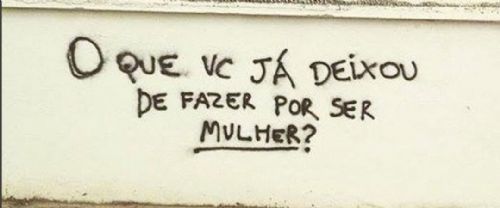 O QUE VC JÁ DEIXOU
DE FAZER POR SER
MULHER?